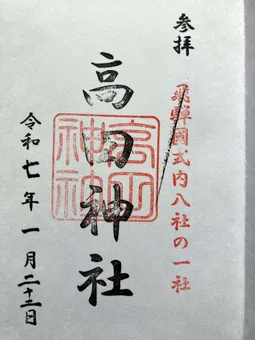 参拝
飛驒國式内八社の一社
高田神社
令和七年一月二十二日